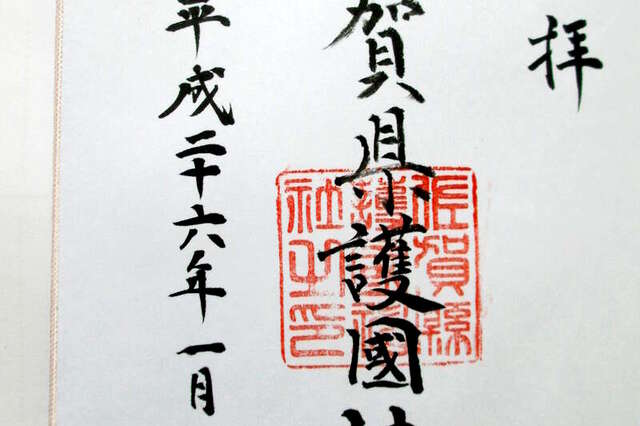 拝
賀県護國
佐賀縣
護國神
社之印
平成二十六年一月